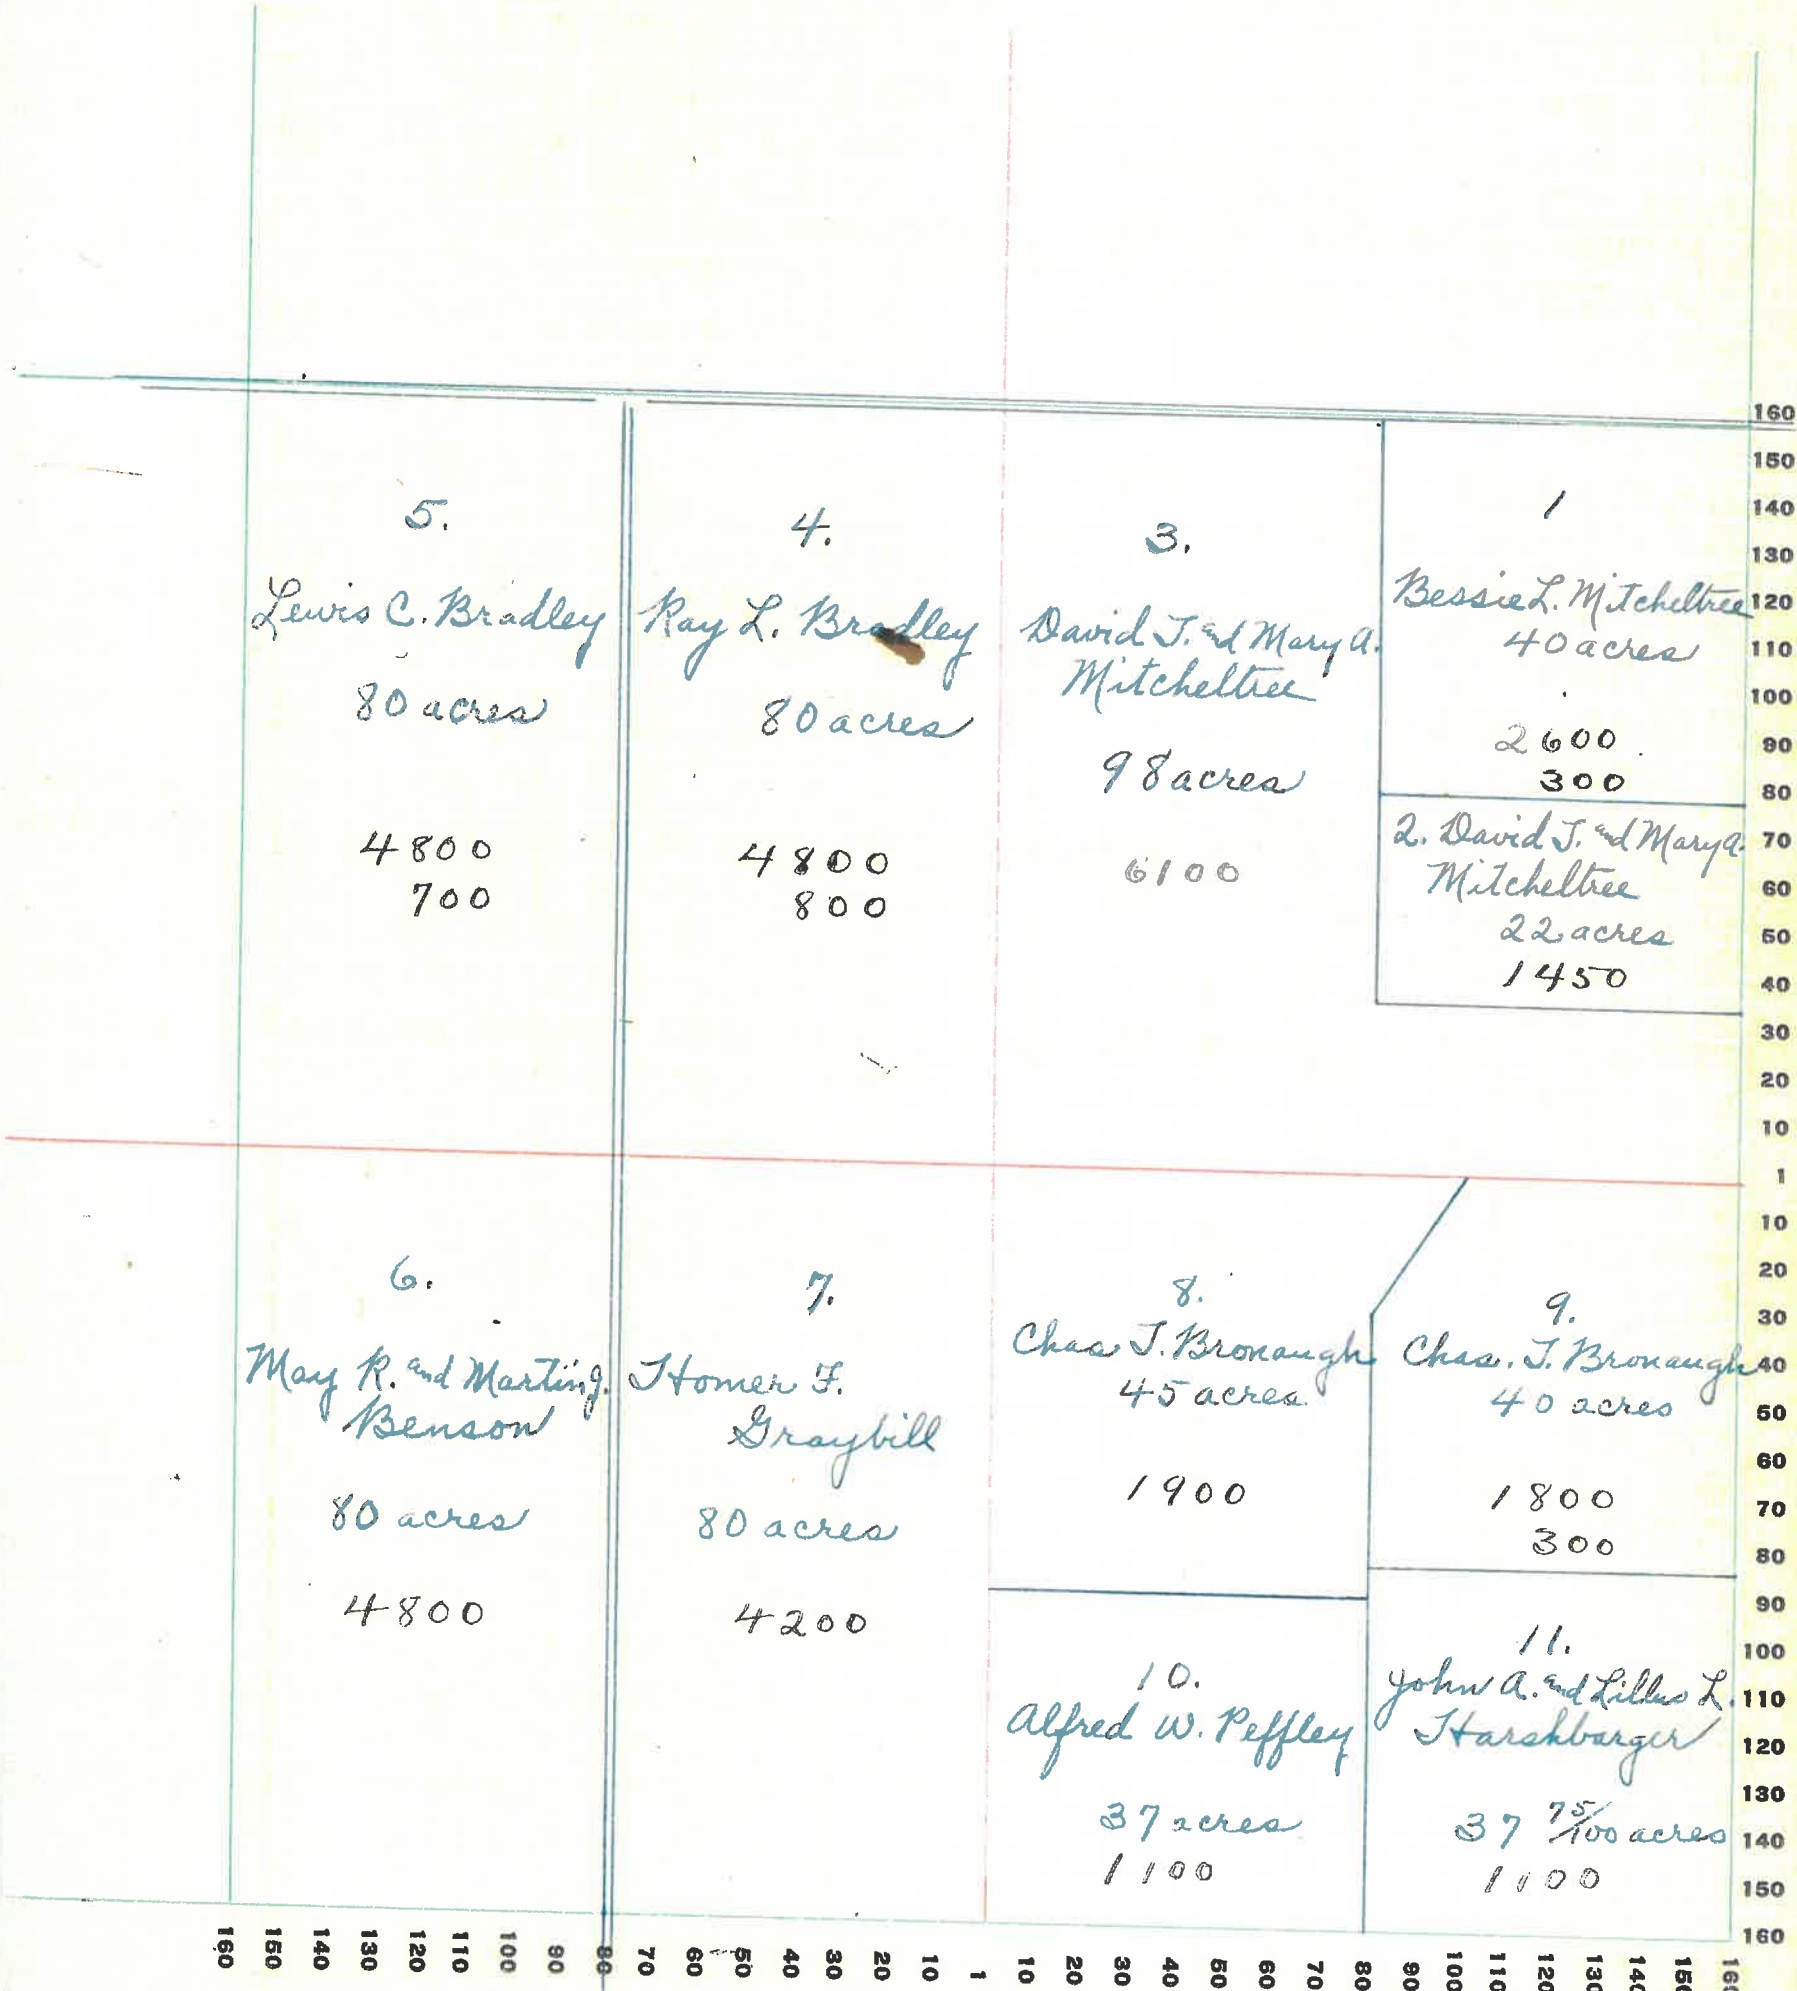 5.
Lewis C. Bradley
80 acres
4800
700
4.
Ray L. Bradley
80 acres
4800
800
3.
David T. and Mary A.
Mitcheltree
98 acres
6100
1
Bessie L. Mitcheltree
40 acres
2600
300
2. David T. and Mary A.
Mitcheltree
22 acres
1450
6.
May R. and Martin J.
Benson
80 acres
4800
7.
Homer F.
Graybill
80 acres
4200
8.
Chas T. Bronaugh
45 acres
1900
9.
Chas. T. Bronaugh
40 acres
1800
300
10.
Alfred W. Peffley
37 acres
1100
11.
John A. and L.
Harshbarger
37 75/100 acres
1100
160
150
140
130
120
110
100
90
80
70
60
50
40
30
20
10
1
10
20
30
40
50
60
70
80
90
100
110
120
130
140
150
160
160 150 140 130 120 110 100 90 80 70 60 50 40 30 20 10 1 10 20 30 40 50 60 70 80 90 100 110 120 130 140 150 160